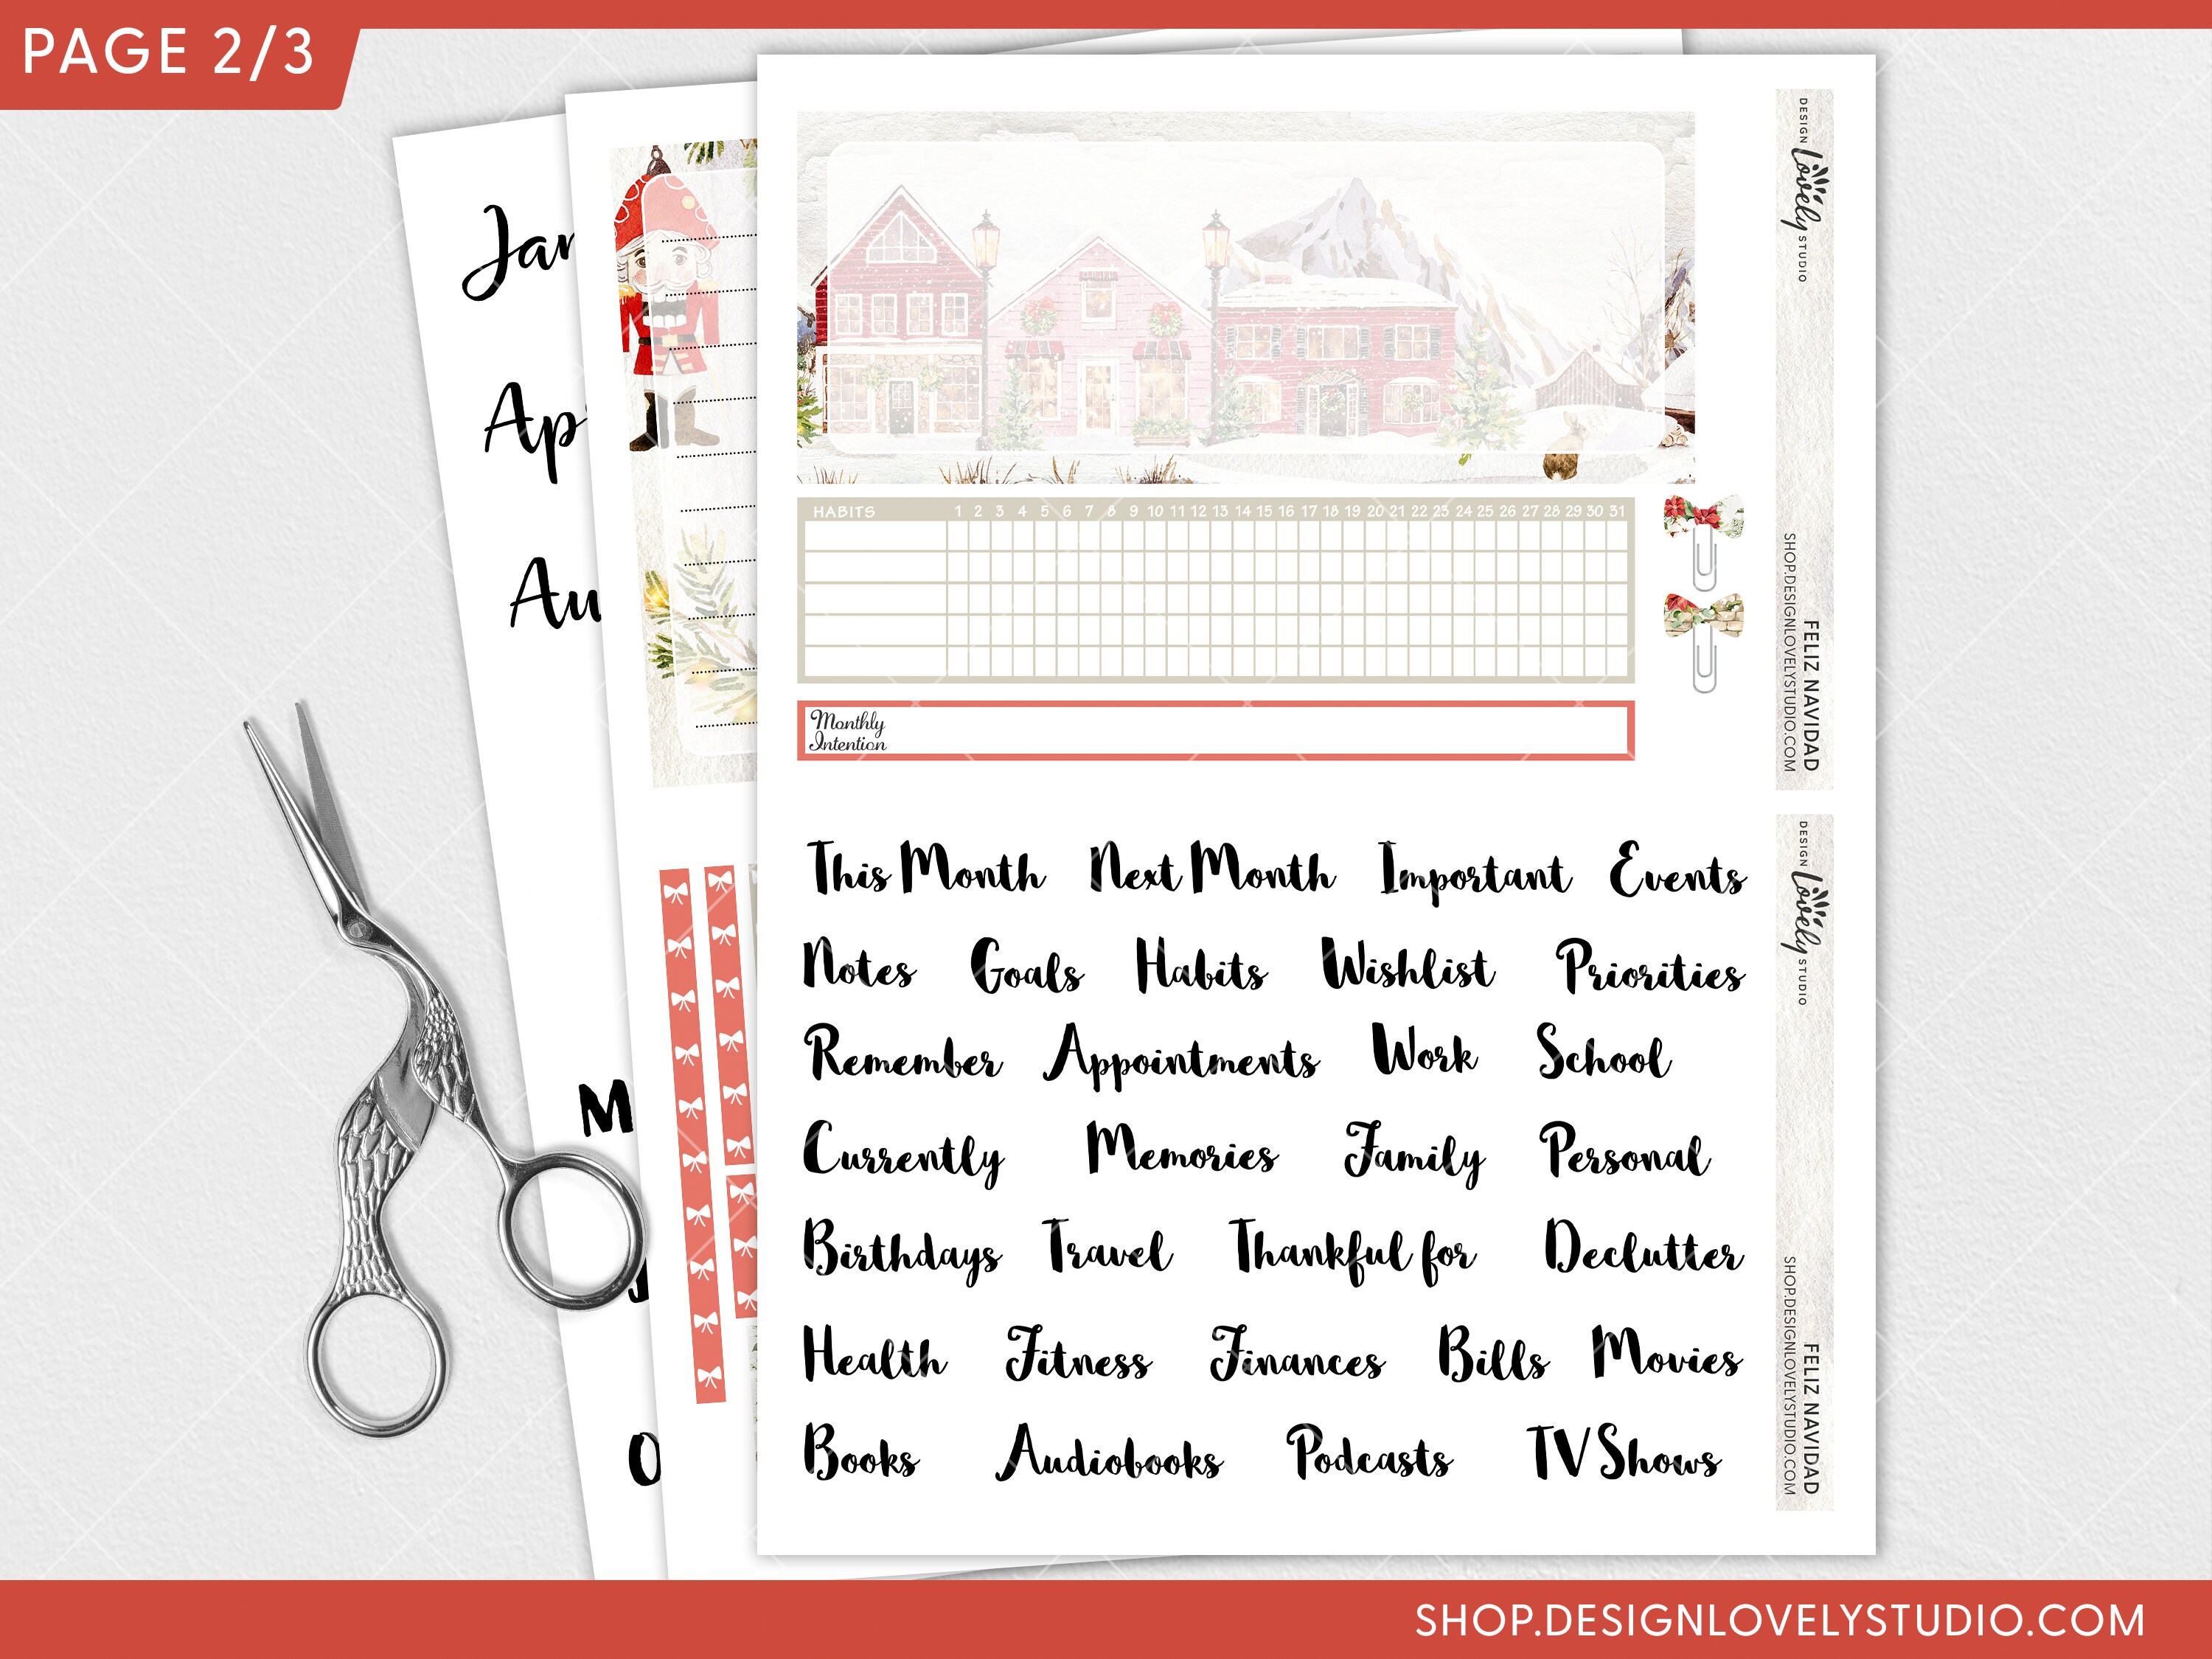 PAGE 2/3
Jan
Ap
Au
M
O
HABITS 1 2 3 4 5 6 7 8 9 10 11 12 13 14 15 16 17 18 19 20 21 22 23 24 25 26 27 28 29 30 31
Monthly
Intention
This Month Next Month Important Events
Notes Goals Habits Wishlist Priorities
Remember Appointments Work School
Currently Memories Family Personal
Birthdays Travel Thankful for Declutter
Health Fitness Finances Bills Movies
Books Audiobooks Podcasts TV Shows
DESIGN Lovely STUDIO
FELIZ NAVIDAD
SHOP.DESIGNLOVELYSTUDIO.COM
DESIGN Lovely STUDIO
FELIZ NAVIDAD
SHOP.DESIGNLOVELYSTUDIO.COM
SHOP.DESIGNLOVELYSTUDIO.COM